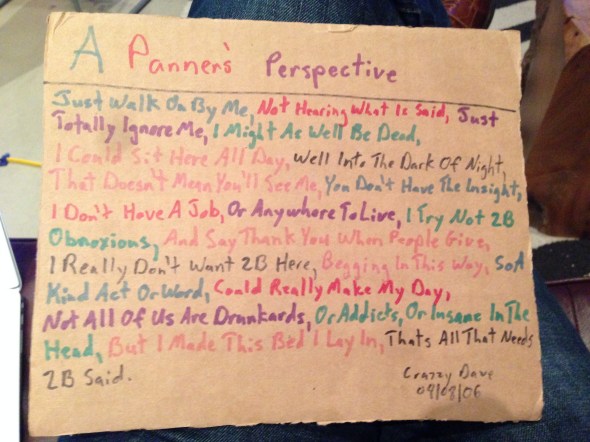 A Panner's Perspective
Just Walk On By Me, Not Hearing What Is Said, Just
Totally Ignore Me, I Might As Well Be Dead,
I Could Sit Here All Day, Well Into The Dark Of Night,
That Doesn't Mean You'll See Me, You Don't Have The Insight,
I Don't Have A Job, Or Anywhere To Live, I Try Not 2B
Obnoxious, And Say Thank You When People Give,
I Really Don't Want 2B Here, Begging In This Way, So A
Kind Act Or Word, Could Really Make My Day,
Not All Of Us Are Drunkards, Or Addicts, Or Insane In The
Head, But I Made This Bed I Lay In, Thats All That Needs
2B Said.
Crazzy Dave
09/03/06